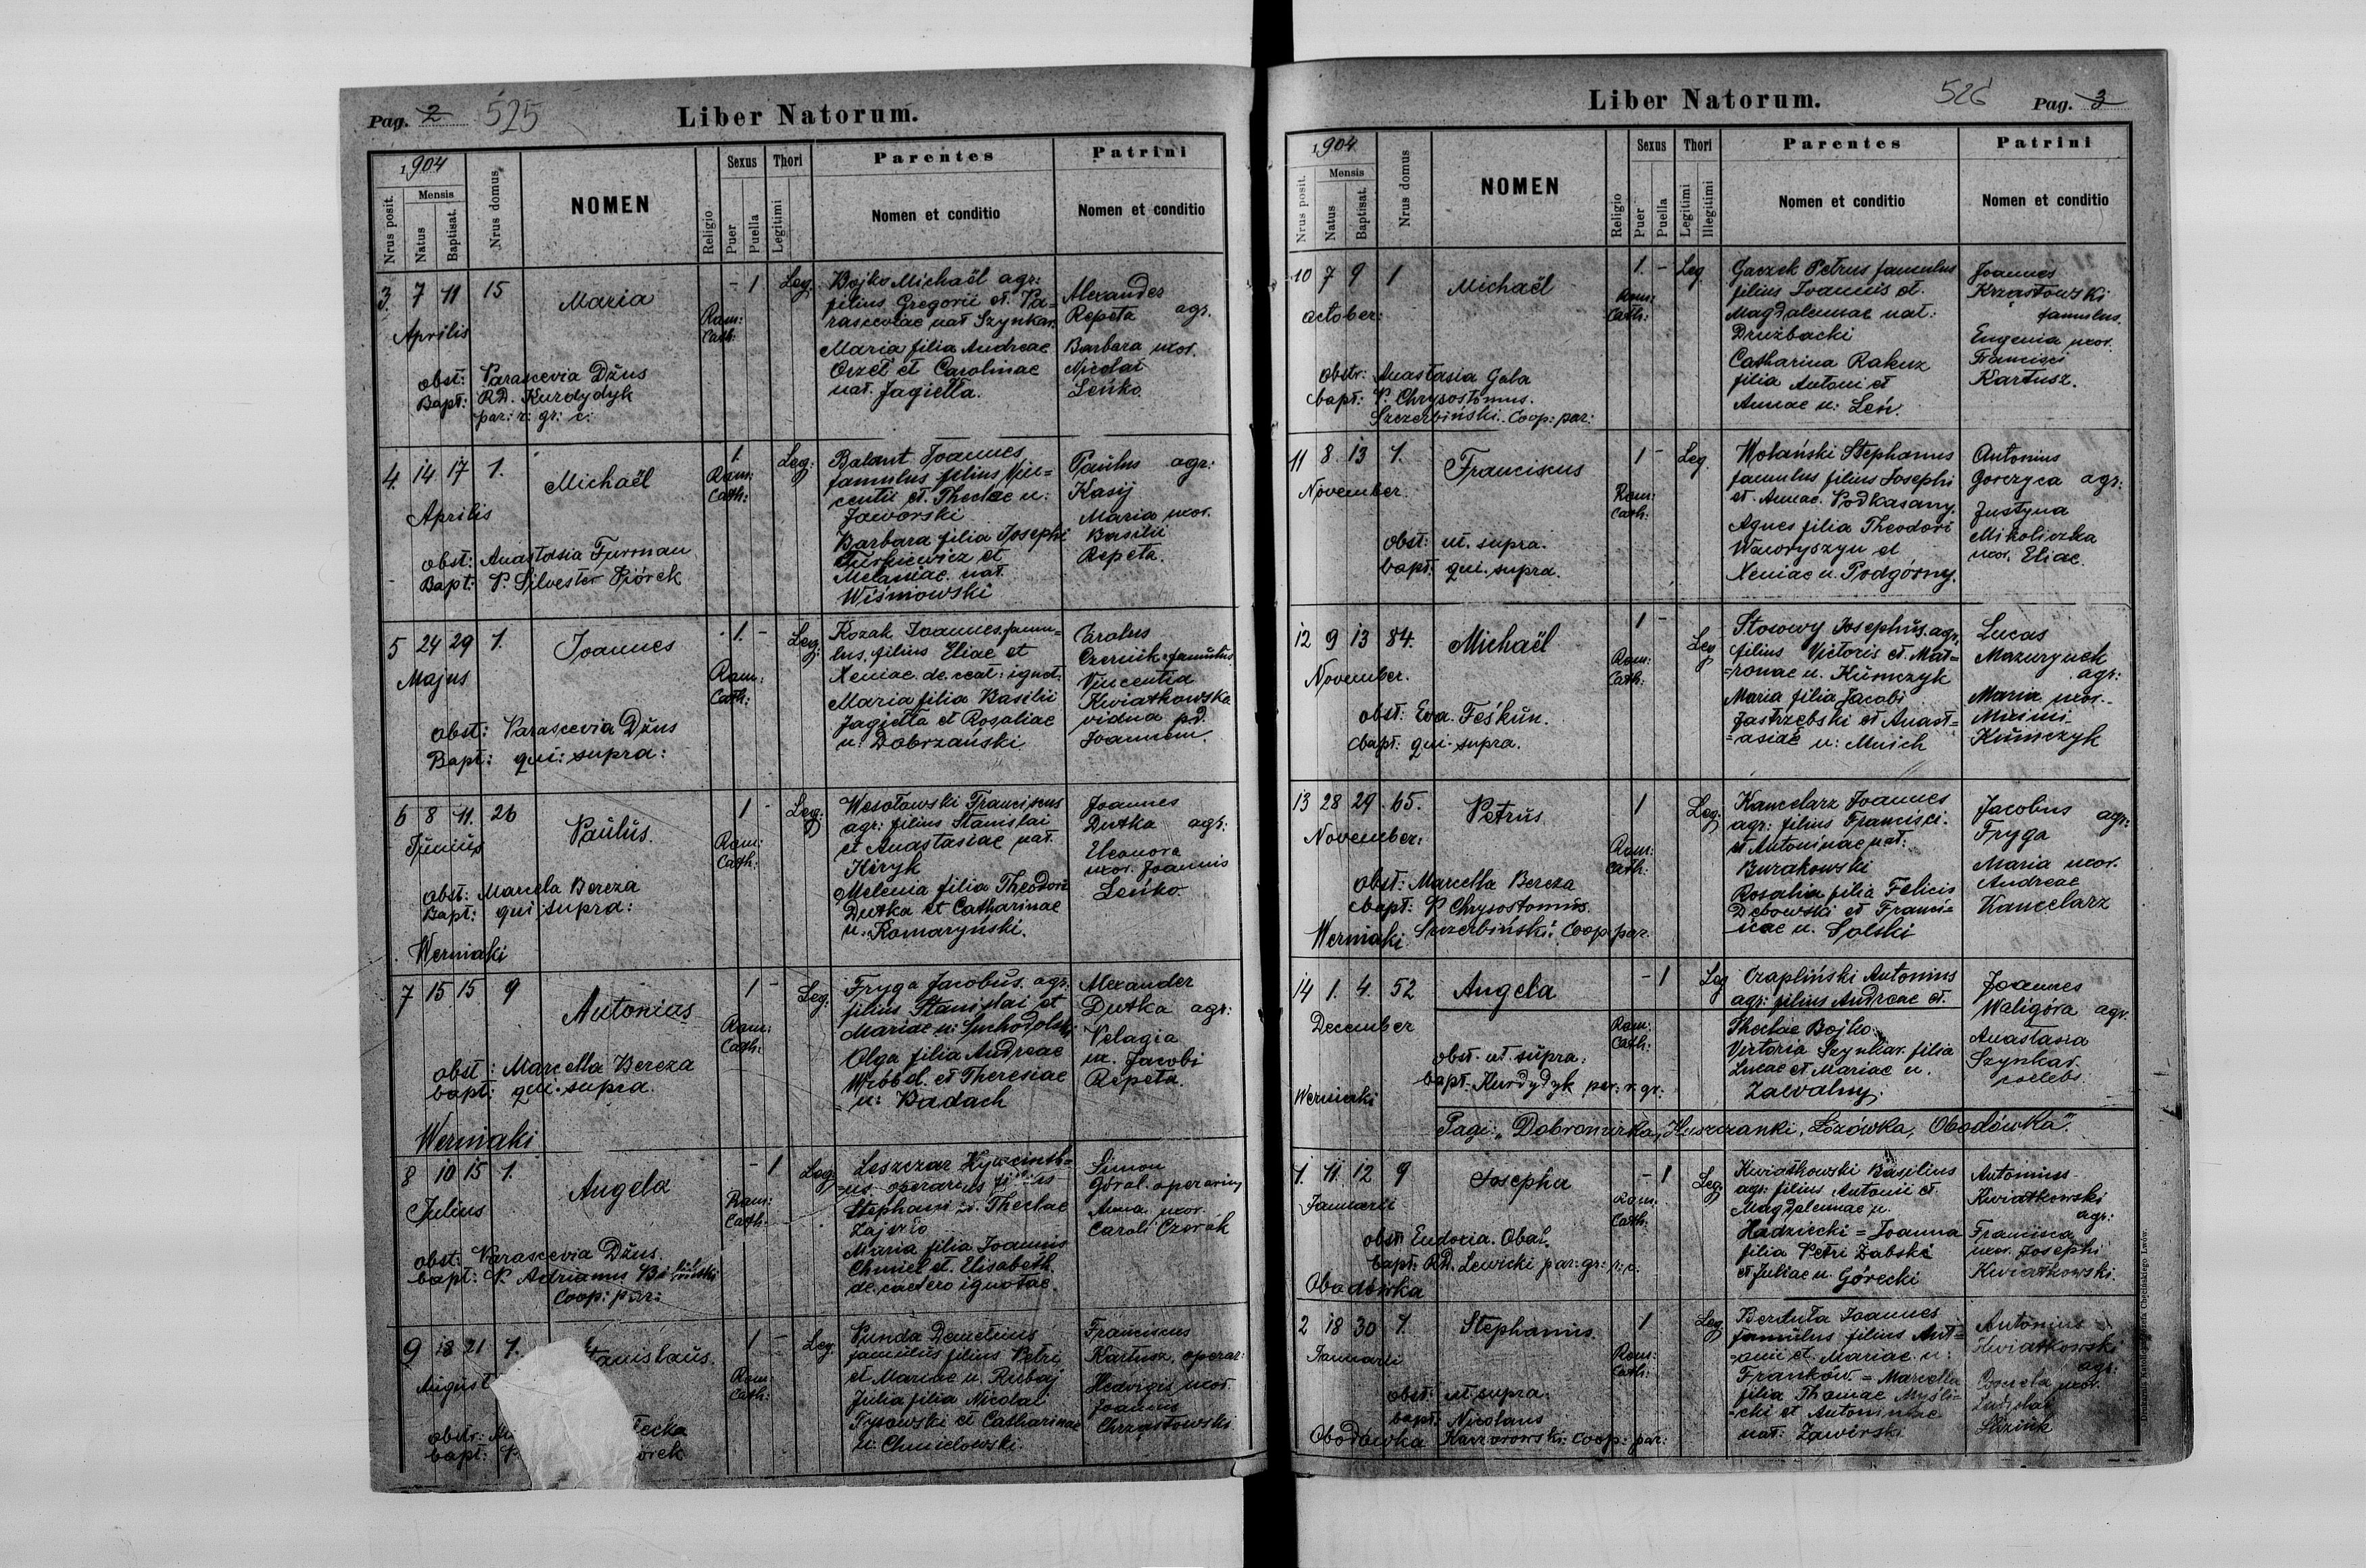 Pag. 2 525 Liber Natorum.
1904
Nrus posit.
Mensis
Natus
Baptisat.
Nrus domus
NOMEN
Religio
Sexus
Puer
Puella
Thori
Legitimi
Parentes
Nomen et conditio
Patrini
Nomen et conditio
3. 7 11 15
Aprilis
Maria
Rom:
Cath:
- 1 Leg.
Bojko Michaël agr:
filius Gregorii et Pa=
rasceviae nat Szynkar.
Maria filia Andreae
Orzel et Carolinae
nat. Jagiełła.
Alexander
Repeta agr.
Barbara uxor.
Nicolai
Leńko
obst: Parascevia Džus
Bapt: RD. Kurdydyk
par: r: gr: c:
4. 14 17 1.
Aprilis
Michaël
1.
Rom:
Cath:
Leg:
Balant Joannes
famulus filius Vin=
centii et Theclae n:
Jaworski
Barbara filia Josephi
Turkiewicz et
Melaniae nat.
Wiśniowski
Paulus agr:
Kasij
Maria uxor.
Basilii
Repeta.
obst: Anastasia Furman
Bapt: P. Silvester Piórek
5 24 29 1.
Majus
Joannes
1. -
Rom:
Cath:
Leg:
Kozak Joannes famu=
lus, filius Eliae et
Xeniae de ceat: ignot.
Maria filia Basilii
Jagiełła et Rosaliae
n: Dobrzański
Carolus
Czernik famulus
Vincentia
Kwiatkowska
vidua pd.
Joannem.
obst: Parascevia Džus
Bapt: qui: supra:
6 8 11. 26
Junius
Paulus.
1 -
Rom:
Cath:
Leg:
Wesołowski Franciscus
agr: filius Stanislai
et Anastasiae nat.
Kiryk
Melenia filia Theodori
Dutka et Catharinae
n. Komaryński.
Joannes
Dutka agr:
Eleonora
uxor. Joannis
Leńko.
obst: Marcela Bereza
Bapt: qui supra:
Werniaki
7 15 15 9
Antonias
1 -
Rom:
Cath:
Leg.
Fryga Jacobus. agr.
filius Stanislai et
Mariae n: Suchodolski
Olga filia Andreae
et Theresiae
n: Badach
Alexander
Dutka agr:
Pelagia
ux. Jacobi
Repeta.
obst: Marcella Bereza
bapt: qui supra.
Werniaki
8 10 15 1.
Julius
Angela
- 1
Rom:
Cath:
Leg.
Leszczar Hyacinth=
us operarius filius
Stephani et Theclae
Maria filia Joannis
Chmiel et Elisabeth
de caetero ignotae.
Simon
Góral operarius
Anna uxor.
Caroli Czorak
obst: Parascevia Džus.
bapt: P. Adrianus
Coop: par:
9 18 21 1.
August
tanislaus.
1 -
Rom:
Cath:
Leg.
Punda Demetrius
famulus filius Petri
et Mariae n. Rubaj
Julia filia Nicolai
Tysowski et Catharinae
n. Chmielowski.
Franciscus
Kartusz. operar:
Hedvigis uxor.
Joannis
Chrząstowski
obstr: tecka
bapt: P. orek
Liber Natorum. 526 Pag. 3
1904
Nrus posit.
Mensis
Natus
Baptisat.
Nrus domus
NOMEN
Religio
Sexus
Puer
Puella
Thori
Legitimi
Illegitimi
Parentes
Nomen et conditio
Patrini
Nomen et conditio
10 7 9 1
October:
Michaël
1. -
Rom:
Cath:
Leg.
Gaczek Petrus famulus
filius Joannis et.
Magdalenae nat:
Drużbacki
Catharina Rakuz
filia Antoni et
Annae n: Leń.
Joannes
Krząstowski
famulus.
Eugenia uxor.
Francisci
Kartusz.
Obstr: Anastasia Gala
bapt: P. Chrysostomus.
Szczerbiński. Coop: par:
11 8 13 1.
November.
Franciscus
1 -
Rom:
Cath:
Leg.
Wolański Stephanus
famulus filius Josephi
et Annae. Podkasany.
Agnes filia Theodori
Wawryszyn et
Xeniae n. Podgórny.
Antonius
Gorczyca agr:
Justyna
Mikoliszka
uxor. Eliae.
obst: ut. supra.
bapt. qui supra.
12 9 13 84.
November.
Michaël
1 -
Rom:
Cath:
Leg
Stosowy Josephus. agr.
filius Victoris et. Mat=
=ronae n. Kumczyk
Maria filia Jacobi
Jastrzebski et Anast=
=asiae n: Mnich
Lucas
Mazurynek
agr:
Maria uxor.
Kumczyk
obst: Eva. Feśkun.
bapt: qui supra.
13 28 29 65.
November.
Petrus
1
Rom:
Cath:
Leg:
Kancelarz Joannes
agr: filius Francisci.
et Antoninae nat:
Burakowski
Rosalia filia Felicis
Dębowski et Franci=
scae n. Solski
Jacobus agr:
Fryga
Maria uxor.
Andreae
Kancelarz
obst: Marcella Bereza
bapt: P Chrysostomus.
Werniaki Szczerbiński Coop par.
14 1. 4. 52
December
Angela
- 1
Rom:
Cath:
Leg
Czapliński Antonius
agr: filius Andreae et.
Theclae Bojko.
Victoria Szynkar. filia
Lucae et Mariae n.
Zawalny.
Joannes
Waligóra agr.
Anastasia
Szynkar.
coelebs.
obst. ut supra:
bapt: Kurdydyk par: r. gr:
Werniaki
Pagi: „Dobromirka, Huszczanki, Łozówka, Obodówka".
1. 11. 12 9
Januarii
Josepha
- 1
Rom:
Cath:
Leg.
Kwiatkowski Basilius
agr: filius Antonii et.
Magdalenae n.
Hadziecki = Joanna
filia Petri Żabski
et Juliae n. Górecki
Antonius
Kwiatkowski
agr:
Francisca
uxor. Josephi
Kwiatkowski.
obst: Eudoxia. Obal.
bapt: RD. Lewicki par: gr: r: c:
Obodówka
2 18 30 7.
Januarii
Stephanus.
1
Rom:
Cath:
Leg
Berduta Joannes
famulus filius Ant=
=onii et. Mariae n:
Franków. = Marcella
filia Thomae Myśli=
=cki et Antoninae
nat: Zawirski
Antonius
Kwiatkowski
agr:
uxor.
obst: ut supra.
bapt: Nicolaus
Obodówka Karzorowski: Coop: par: